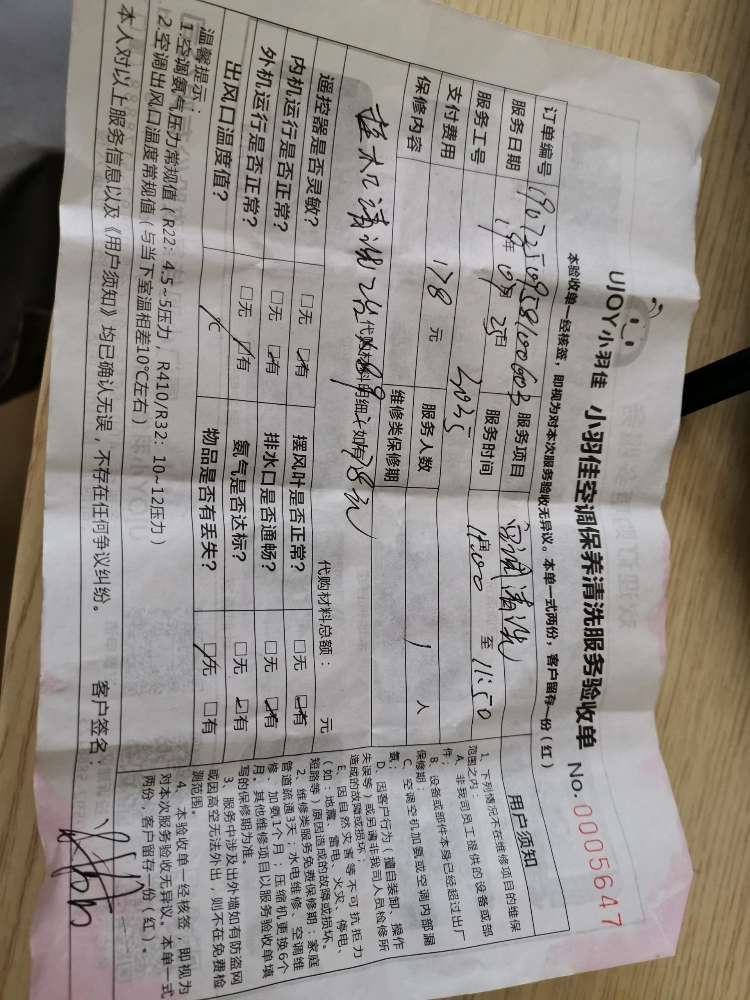 UJOY小羽佳 小羽佳空调保养清洗服务验收单 No. 0005647
本验收单一经核签，即视为对本次服务验收无异议。本单一式两份，客户留存一份（红）
订单编号 服务项目 空调清洗
服务日期 19年07月25日 服务时间 至 11:50
服务工号 2035 服务人数 1 人
支付费用 178 元 维修类保修期
保修内容
挂机清洗2台 代购材料明细
代购材料总额： 元
遥控器是否灵敏？ □无 □有 摆风叶是否正常？ □无 □有
内机运行是否正常？ □无 □有 排水口是否通畅？ □无 □有
外机运行是否正常？ □无 □有 氨气是否达标？ □无 □有
出风口温度值？ ℃ 物品是否有丢失？ □无 □有
温馨提示：
1.空调氨气压力常规值（R22：4.5~5压力，R410/R32：10~12压力）
2.空调出风口温度常规值（与当下室温相差10℃左右）
本人对以上服务信息以及《用户须知》均已确认无误，不存在任何争议纠纷。 客户签名：
用户须知
1、下列情况不在维修项目的维保
范围之内：
A、非我司员工提供的设备或部
件；
B、设备或部件本身已经超过出厂
保修期；
C、空调空机加氨或空调内部漏
氨；
D、因客户行为（擅自装卸、操作
失误等）或另请非我司人员检修所
造成的故障或损坏；
E、因自然灾害等不可抗拒力
（如：地震、雷电、火灾、停电、
短路等）原因造成的故障或损坏。
2、维修类服务免费保修期：家庭
管道疏通3天；水电维修、空调维
修、加氨1个月；压缩机更换6个
月。其他维修项目以服务验收单填
写的保修期为准。
3、服务中涉及出外墙如有防盗网
或因高空无法外出，则不在免费检
测范围。
4、本验收单一经核签，即视为
对本次服务验收无异议。本单一式
两份，客户留存一份（红）。